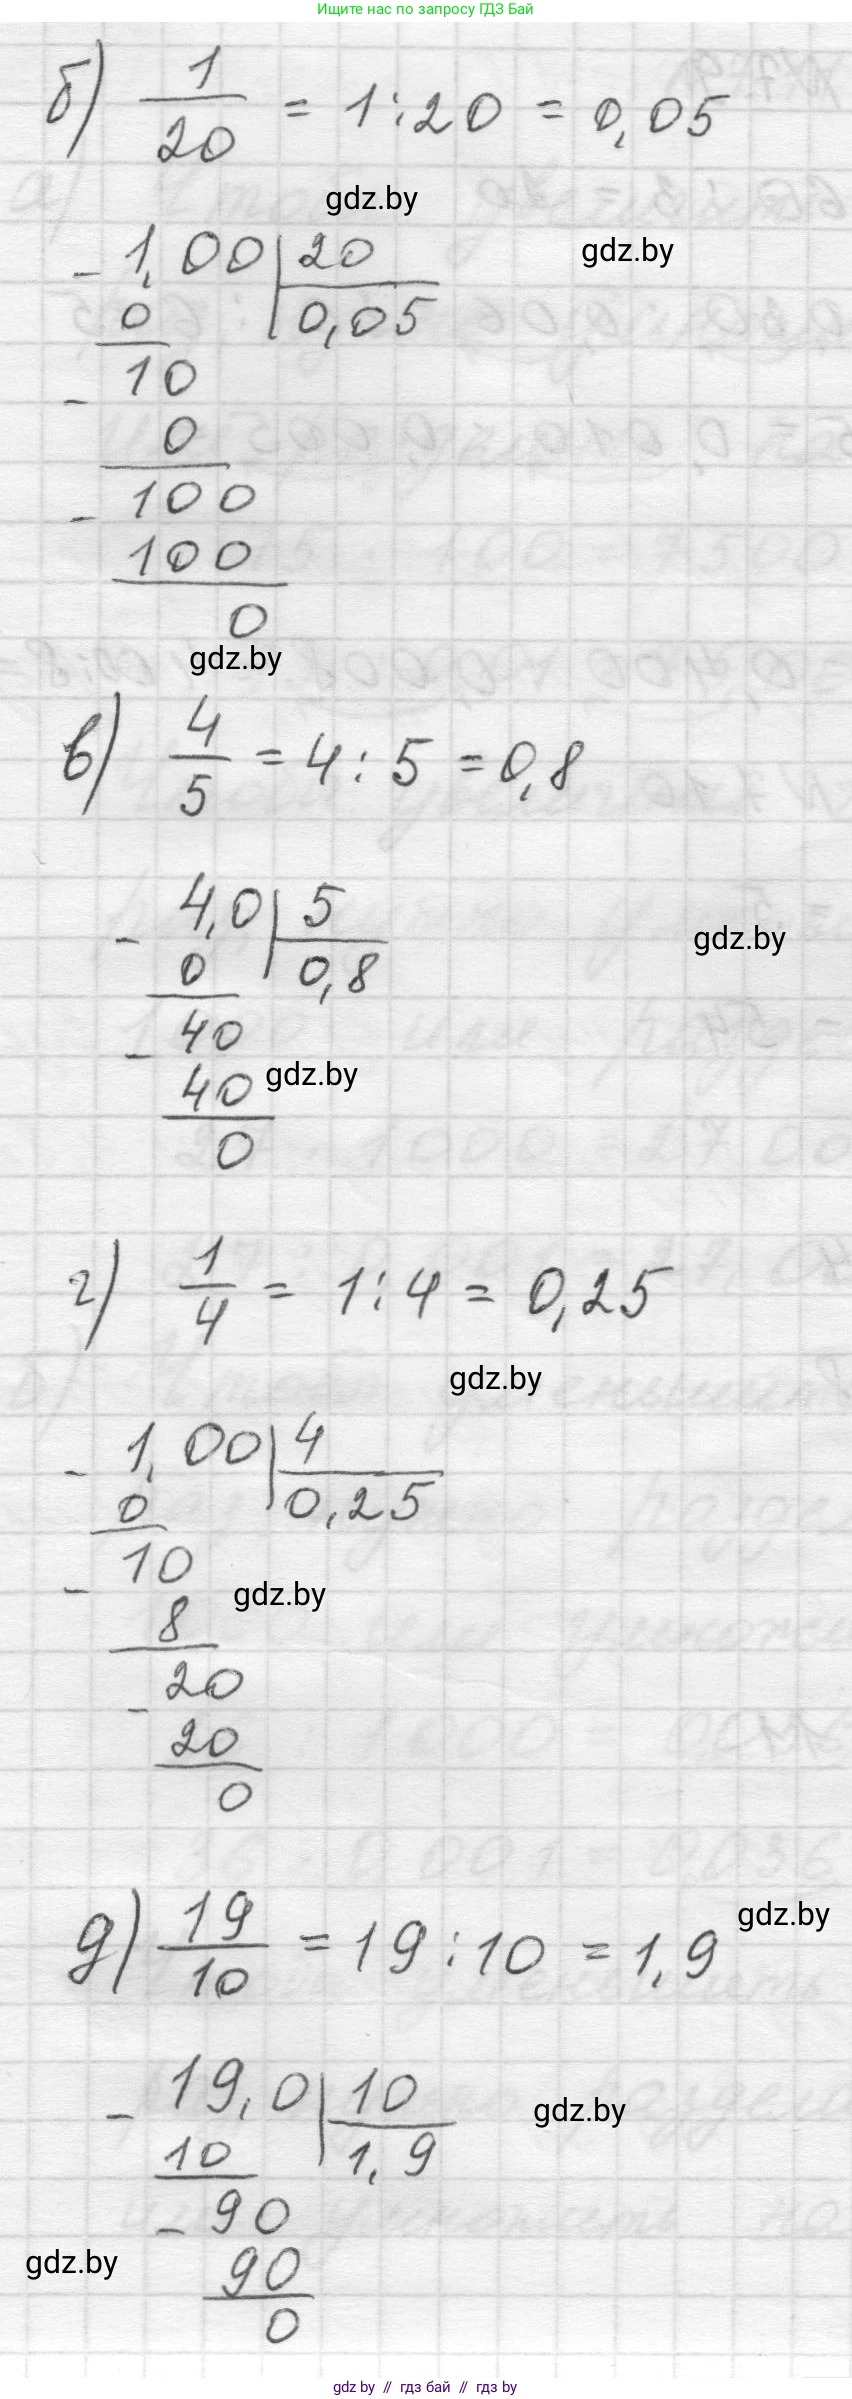 Ищите нас по запросу ГДЗ Бай
б) 1/20 = 1:20 = 0,05
gdz.by
gdz.by
- 1,00 | 20
0 | 0,05
- 10
0
- 100
100
0
gdz.by
в) 4/5 = 4:5 = 0,8
- 4,0 | 5
gdz.by
0 | 0,8
- 40
gdz.by
40
0
г) 1/4 = 1:4 = 0,25
gdz.by
- 1,00 | 4
0 | 0,25
- 10
gdz.by
8
- 20
20
0
gdz.by
д) 19/10 = 19:10 = 1,9
- 19,0 | 10
gdz.by
10 | 1,9
- 90
gdz.by
90
0
gdz.by // гдз бай // гдз by